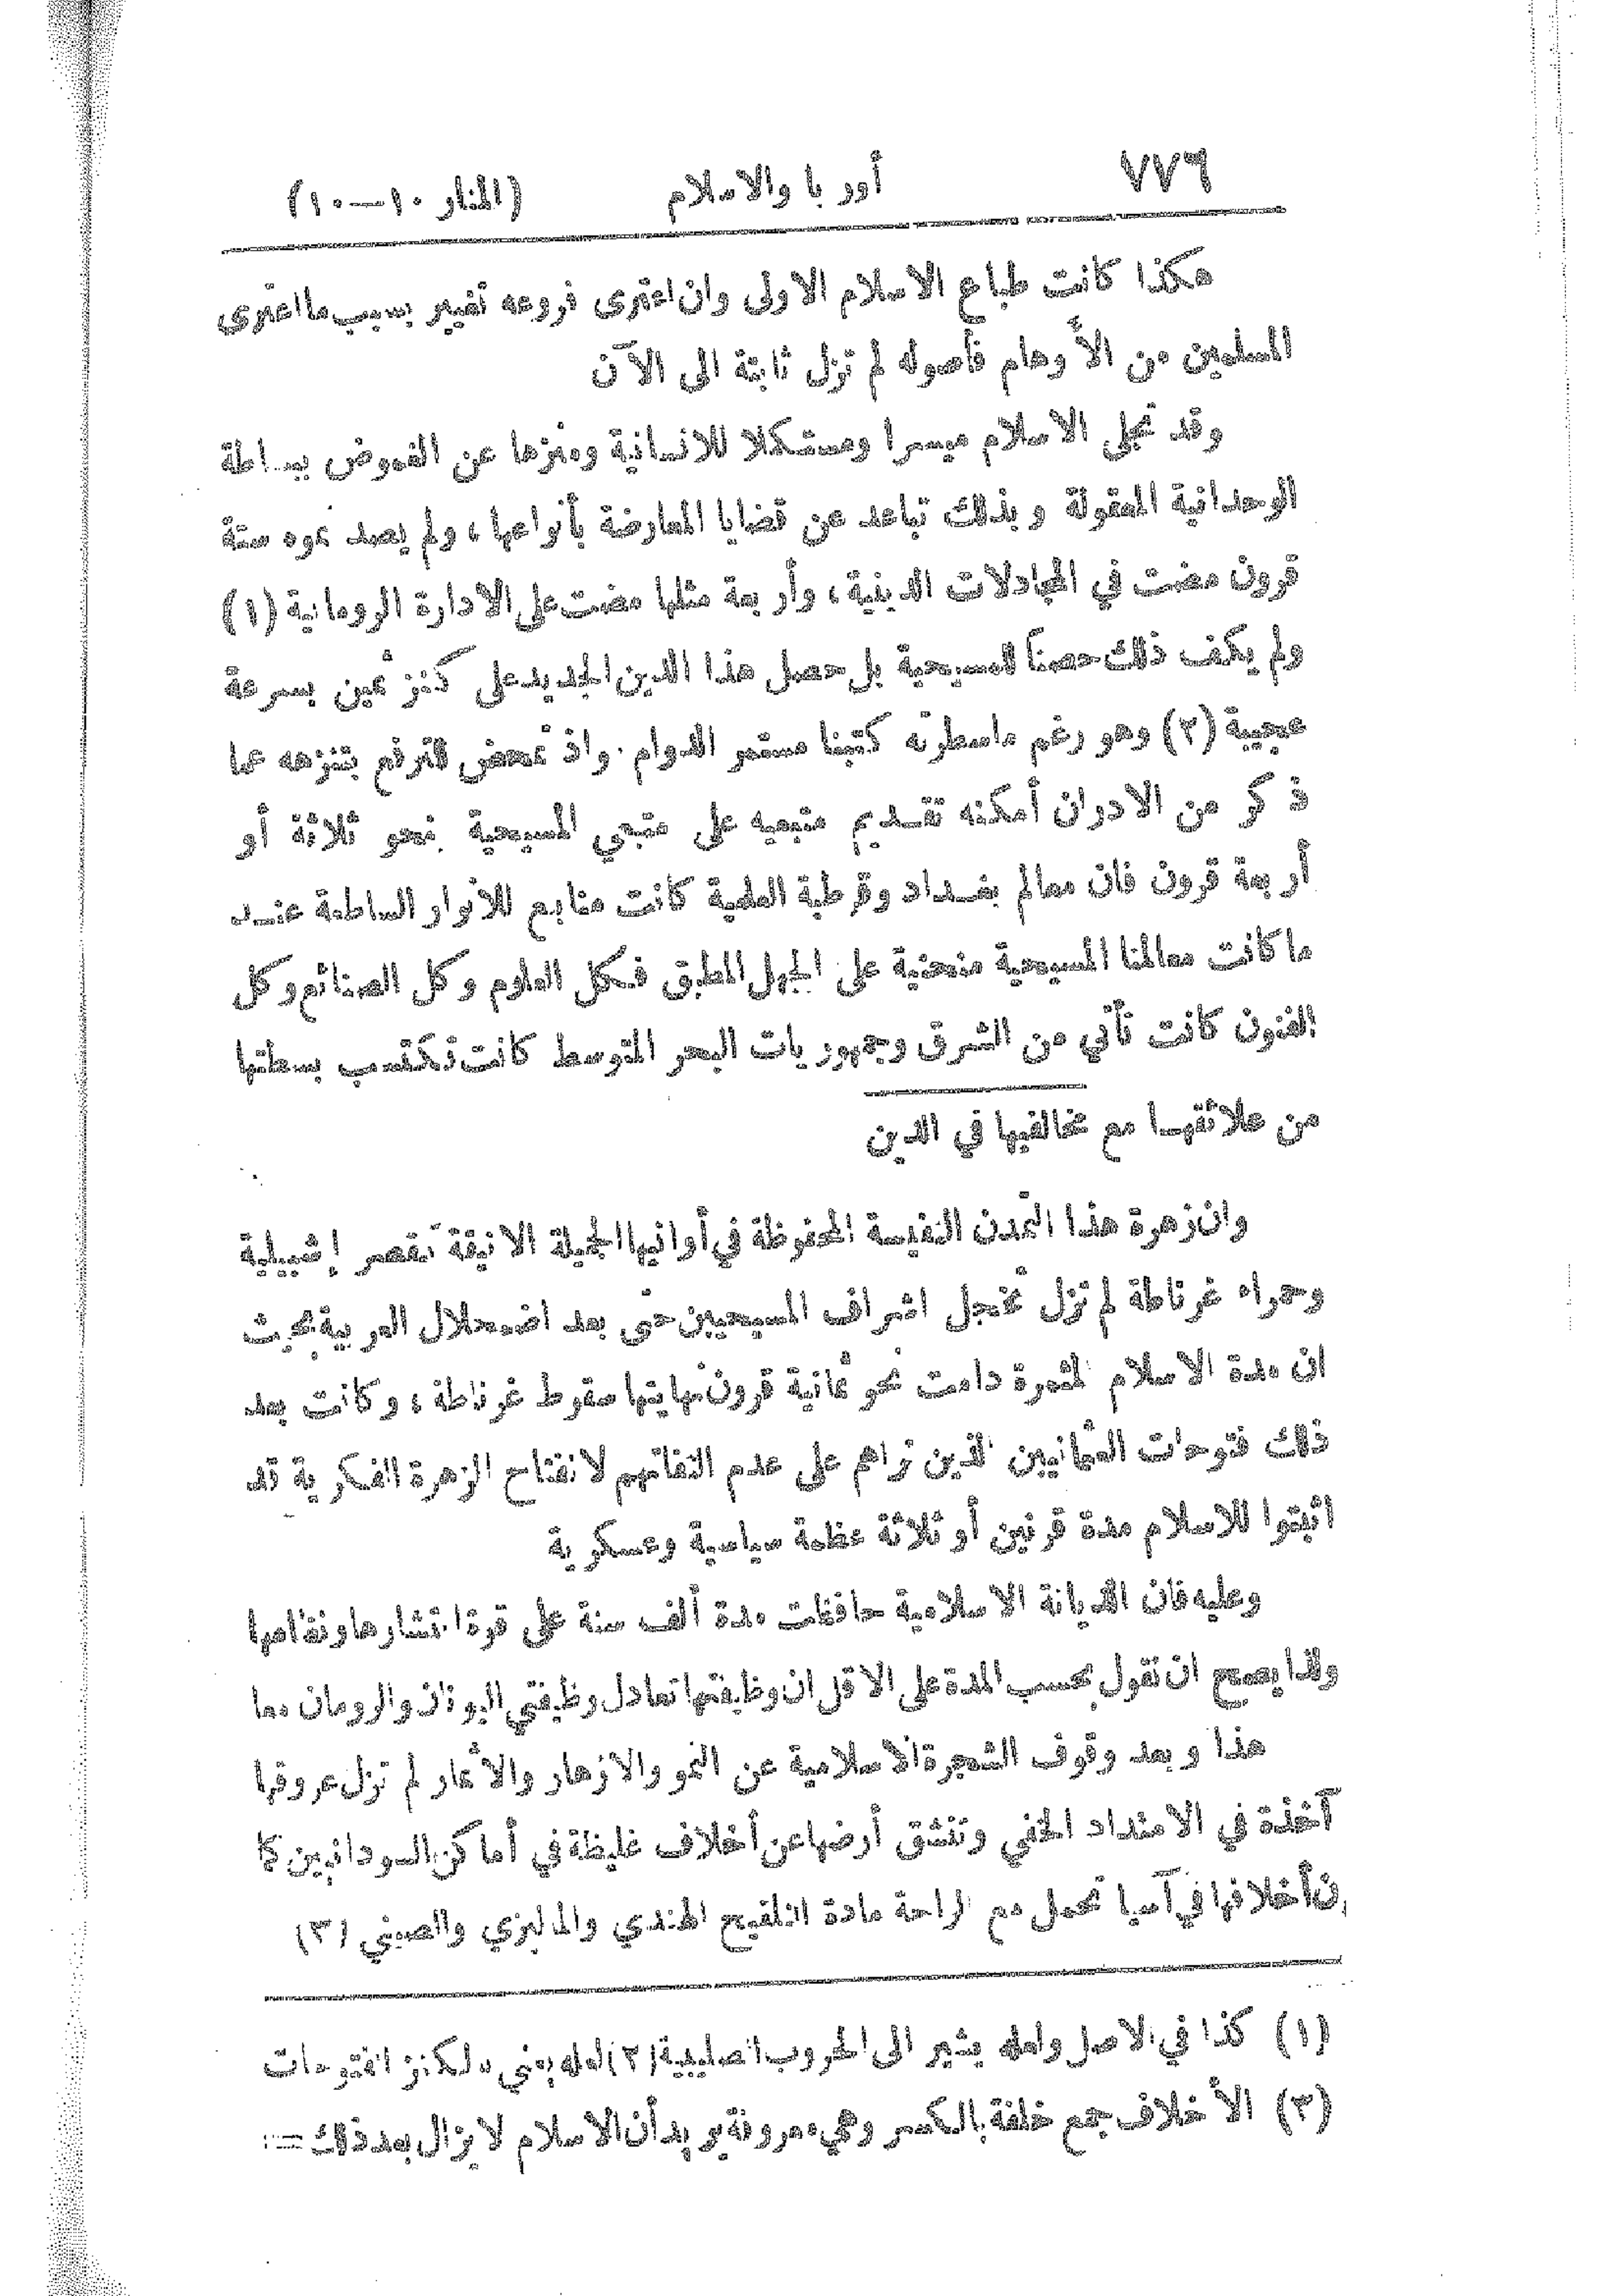 ٧٧٦ أوربا والاسلام (المنار ١٠—١٠)
هكذا كانت طباع الاسلام الاولى وان اعترى فروعه تغيير بسبب ما اعترى
المسلمين من الأوهام فأصوله لم تزل ثابتة الى الآن
وقد تجلى الاسلام ميسرا ومستكملا للانسانية ومنزها عن الغموض ببساطة
الوحدانية المعقولة وبذلك تباعد عن قضايا المعارضة بأنواعها ، ولم يصد نموه ستة
قرون مضت في المجادلات الدينية ، وأربعة مثلها مضت على الادارة الرومانية (١)
ولم يكف ذلك حصناً للمسيحية بل حصل هذا الدين الجديد على كنز ثمين بسرعة
عجيبة (٢) وهو رغم ماسطرته كتبنا مستمر الدوام . واذ تمحض للترفع بتنزهه عما
ذكر من الادران أمكنه تقديم متبعيه على متبعي المسيحية بنحو ثلاثة أو
أربعة قرون فان معالم بغداد وقرطبة العلمية كانت منابع للانوار الساطعة عند
ما كانت معالمنا المسيحية منحنية على الجهل المطبق فكل العلوم وكل الصنائع وكل
الفنون كانت تأتي من الشرق وجمهوريات البحر المتوسط كانت تكتسب بسطتها
من علائقها مع مخالفيها في الدين
وان زهرة هذا التمدن النفيسة المحفوظة في أوانيها الجميلة الانيقة كقصر إشبيلية
وحمراء غرناطة لم تزل تخجل اشراف المسيحيين حتى بعد اضمحلال العربية بحيث
ان مدة الاسلام المثمرة دامت نحو ثمانية قرون نهايتها سقوط غرناطة ، وكانت بعد
ذلك فتوحات العثمانيين الذين نراهم على عدم التفاتهم لانفتاح الزهرة الفكرية قد
اثبتوا للاسلام مدة قرنين أو ثلاثة عظمة سياسية وعسكرية
وعليه فان الديانة الاسلامية حافظت مدة ألف سنة على قوة انتشارها ونظامها
ولذا يصح ان نقول بحسب المدة على الاقل ان وظيفتها تعادل وظيفتي اليونان والرومان معا
هذا وبعد وقوف الشجرة الاسلامية عن النمو والازهار والاثمار لم تزل عروقها
آخذة في الامتداد الخفي وتنشق أرضها عن أخلاف غليظة في أماكن السودانيين كما
ن أخلافها في آسيا تحمل مع الراحة مادة التلقيح الهندي والماليزي والصيني (٣)
(١) كذا في الاصل ولعله يشير الى الحروب الصليبية (٢) لعله يعني بالكنز الفتوحات
(٣) الأخلاف جمع خلفة بالكسر وهي معروفة يريد أن الاسلام لا يزال بعد ذلك =